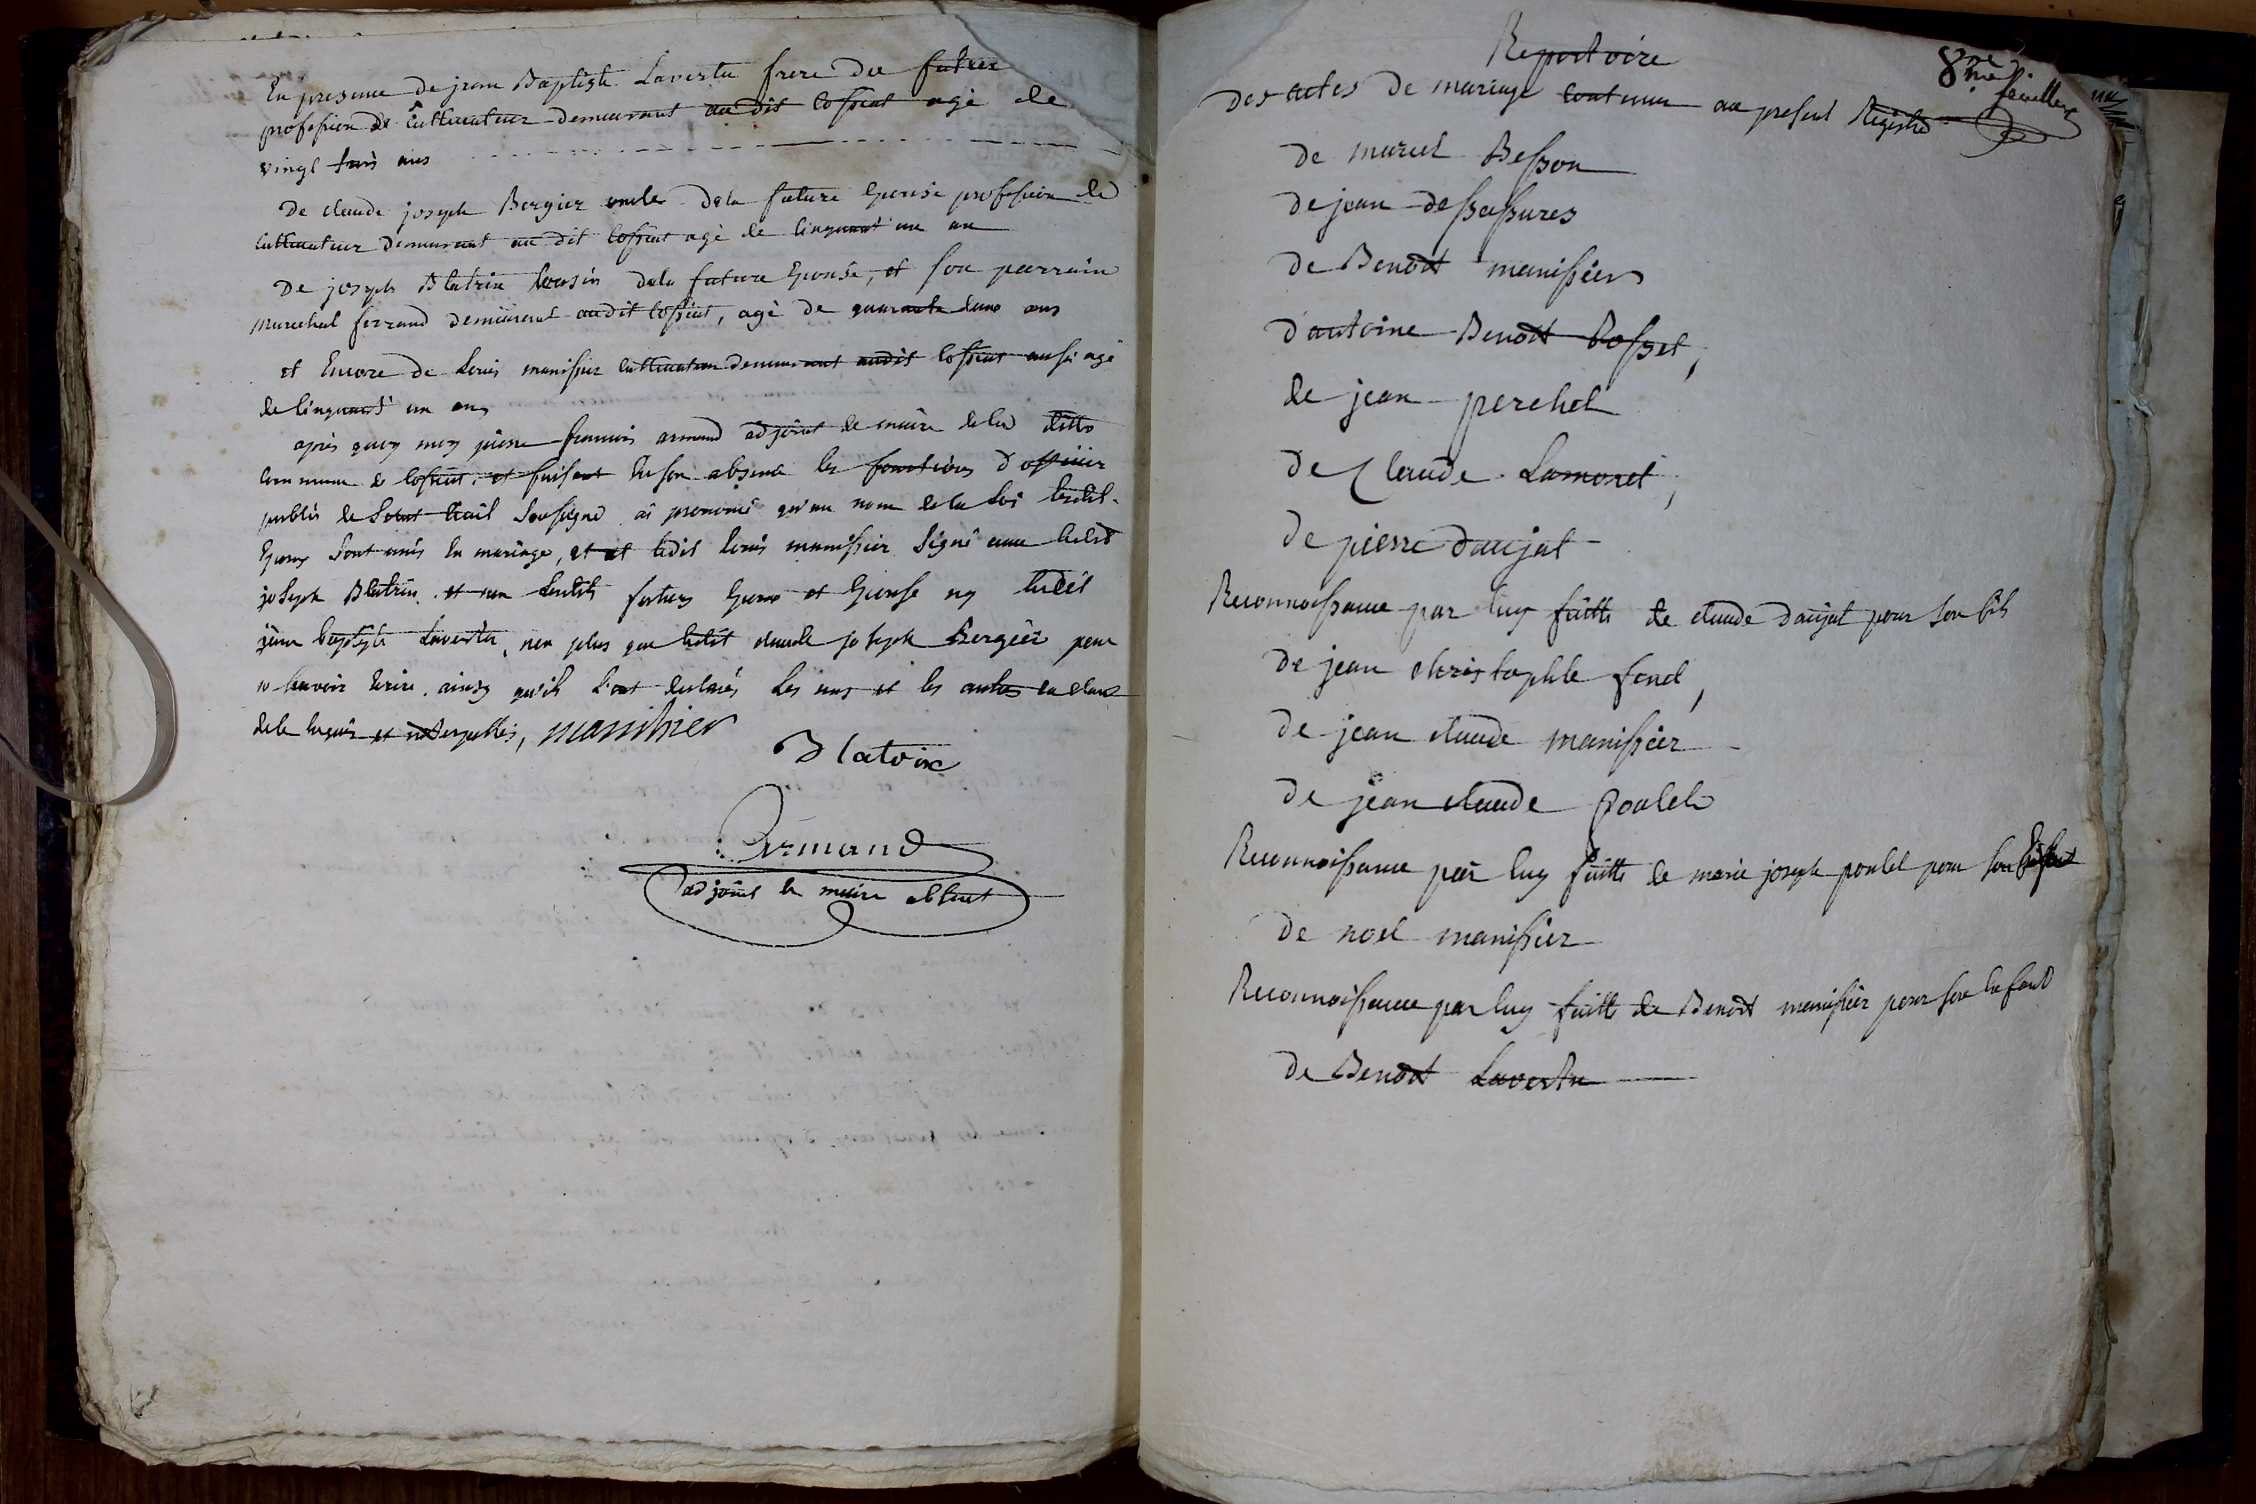 En presence de jean Baptiste Lavertu frere du futur
profession de Cultivateur demeurant au dit Cossieut agé de
vingt trois ans
De claude joseph Bergier oncle de la future Epouse profession de
Cultivateur demeurant au dit Cossieut agé de Cinquant' un an
De joseph Blatrix Cousin dela future Epouse, et son parrain
marechal ferrand demeurant audit Cossieut, agé de quarante deux ans
et Encore de Louis manissier Cultivateur demeurant audit Cossieut aussi agé
de Cinquant' un ans
après quoy moy pierre francois armand adjoint de maire de la ditte
Commune de Cossieut, et faisant En son absence les fonctions d'officier
public de l'etat Civil Soussigné ai prononcé qu'au nom de la Loi lesdits
Epoux Sont unis En mariage, et et ledit Louis manissier Signé avec ledit
joseph Blatrix. et non lesdits futurs Epoux et Epouse ny ledit
jean baptiste Lavertu, non plus que ledit claude joseph Bergier pour
ne Scavoir Ecrire. ainsy qu'ils L'ont declarés Les uns et les autres
de ce requis et interpellés, manihier
Blatrix
Armand
adjoint le maire absent
Repertoire
8me feuillet
Des actes De mariage Contenu au present Registre
De marcel Besson
De jean dessassures
De Benoit manissier
D'antoine Benoit Cosset,
de jean perchet
De Claude Lamoret,
De pierre daujat
Reconnoissance par luy faitte de claude daujat pour Son fils
De jean christophle fond,
De jean claude manissier
De jean claude poulet
Reconnoissance par luy faitte de marie joseph poulet pour Son
De noel manissier
Reconnoissance par luy faitte de Benoit manissier pour Son Enfant
De Benoit Lavertu